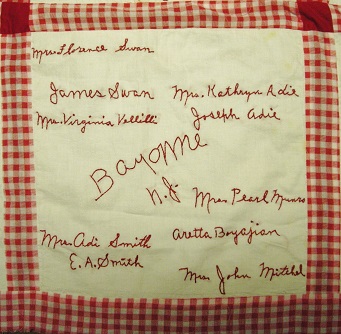 Mrs. Florence Swan
James Swan
Mrs. Kathryn Adie
Mrs. Virginia Vellilli
Joseph Adie
Bayonne
N.J.
Mrs. Pearl Munro
Mrs. Adi Smith
Aretta Boyajian
E.A. Smith
Mrs John